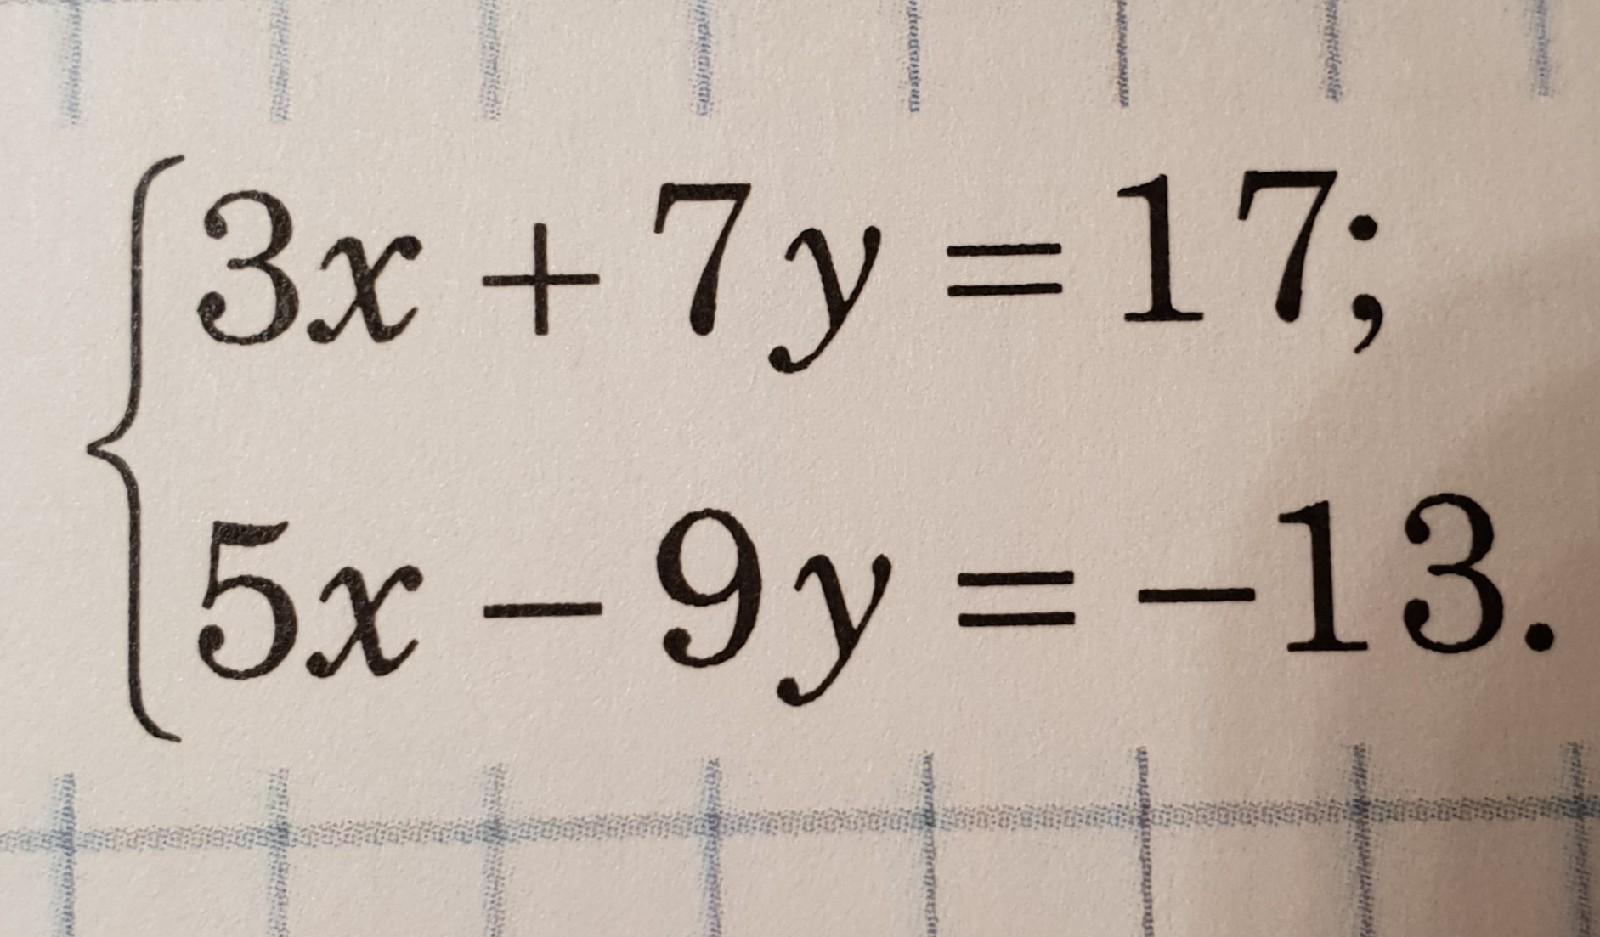 3x + 7y = 17;
5x − 9y = −13.